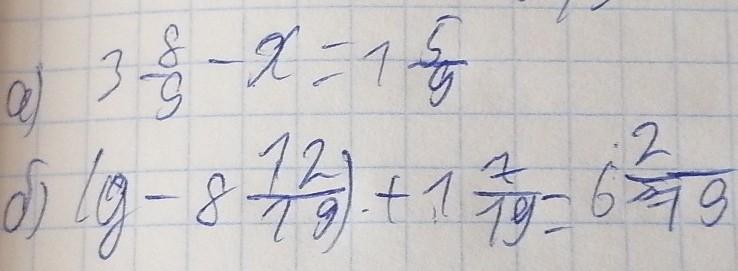 а) 3 8/9 - x = 1 5/9
б) (y - 8 12/19) + 1 7/19 = 6 2/19